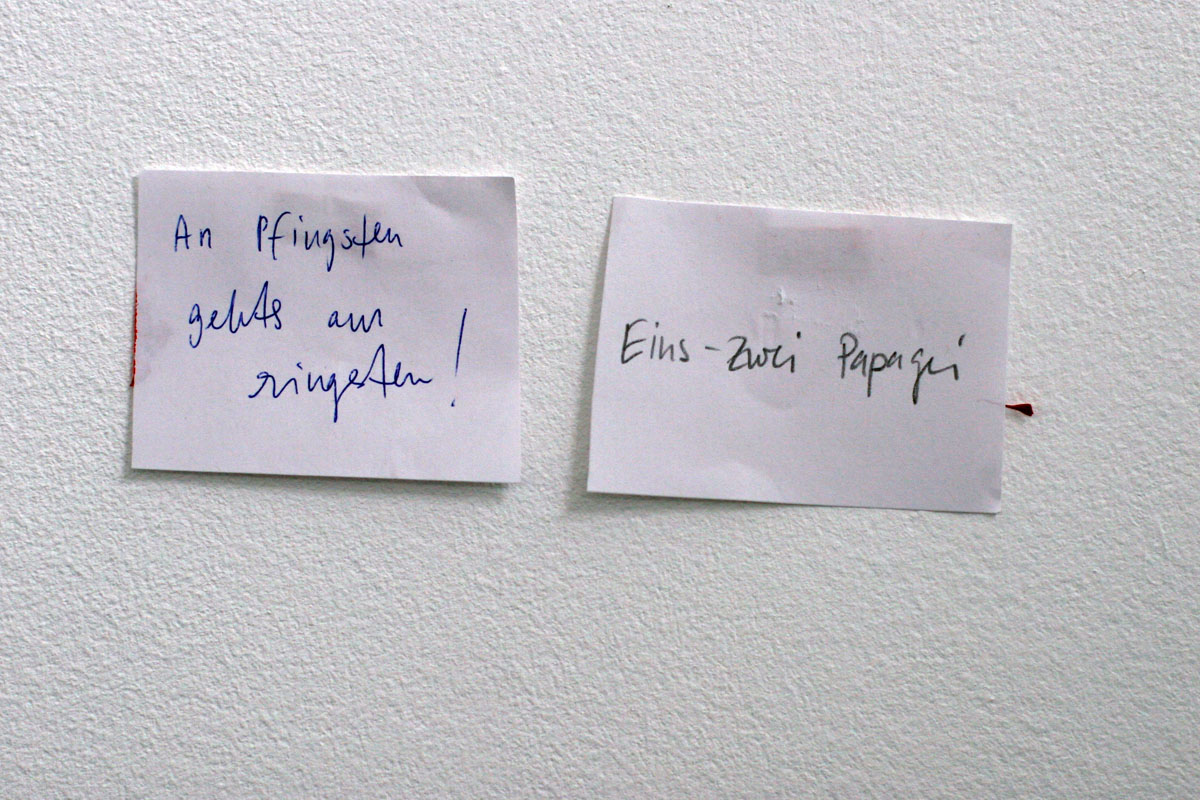 An Pfingsten
gehts am
ringsten!
Eins-zwei Papagei